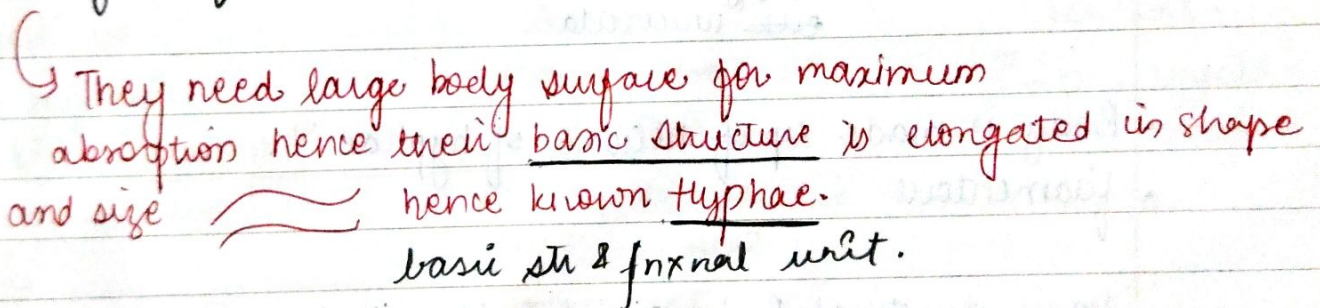 They need large body surface for maximum
absorption hence their basic structure is elongated in shape
and size hence known Hyphae.
basic str & fnxnal unit.